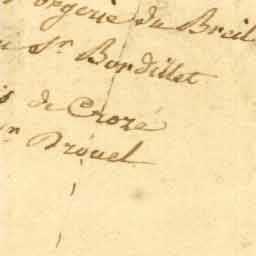 orgerie du Breil
Sr Bordillet
de Croze
Drouel